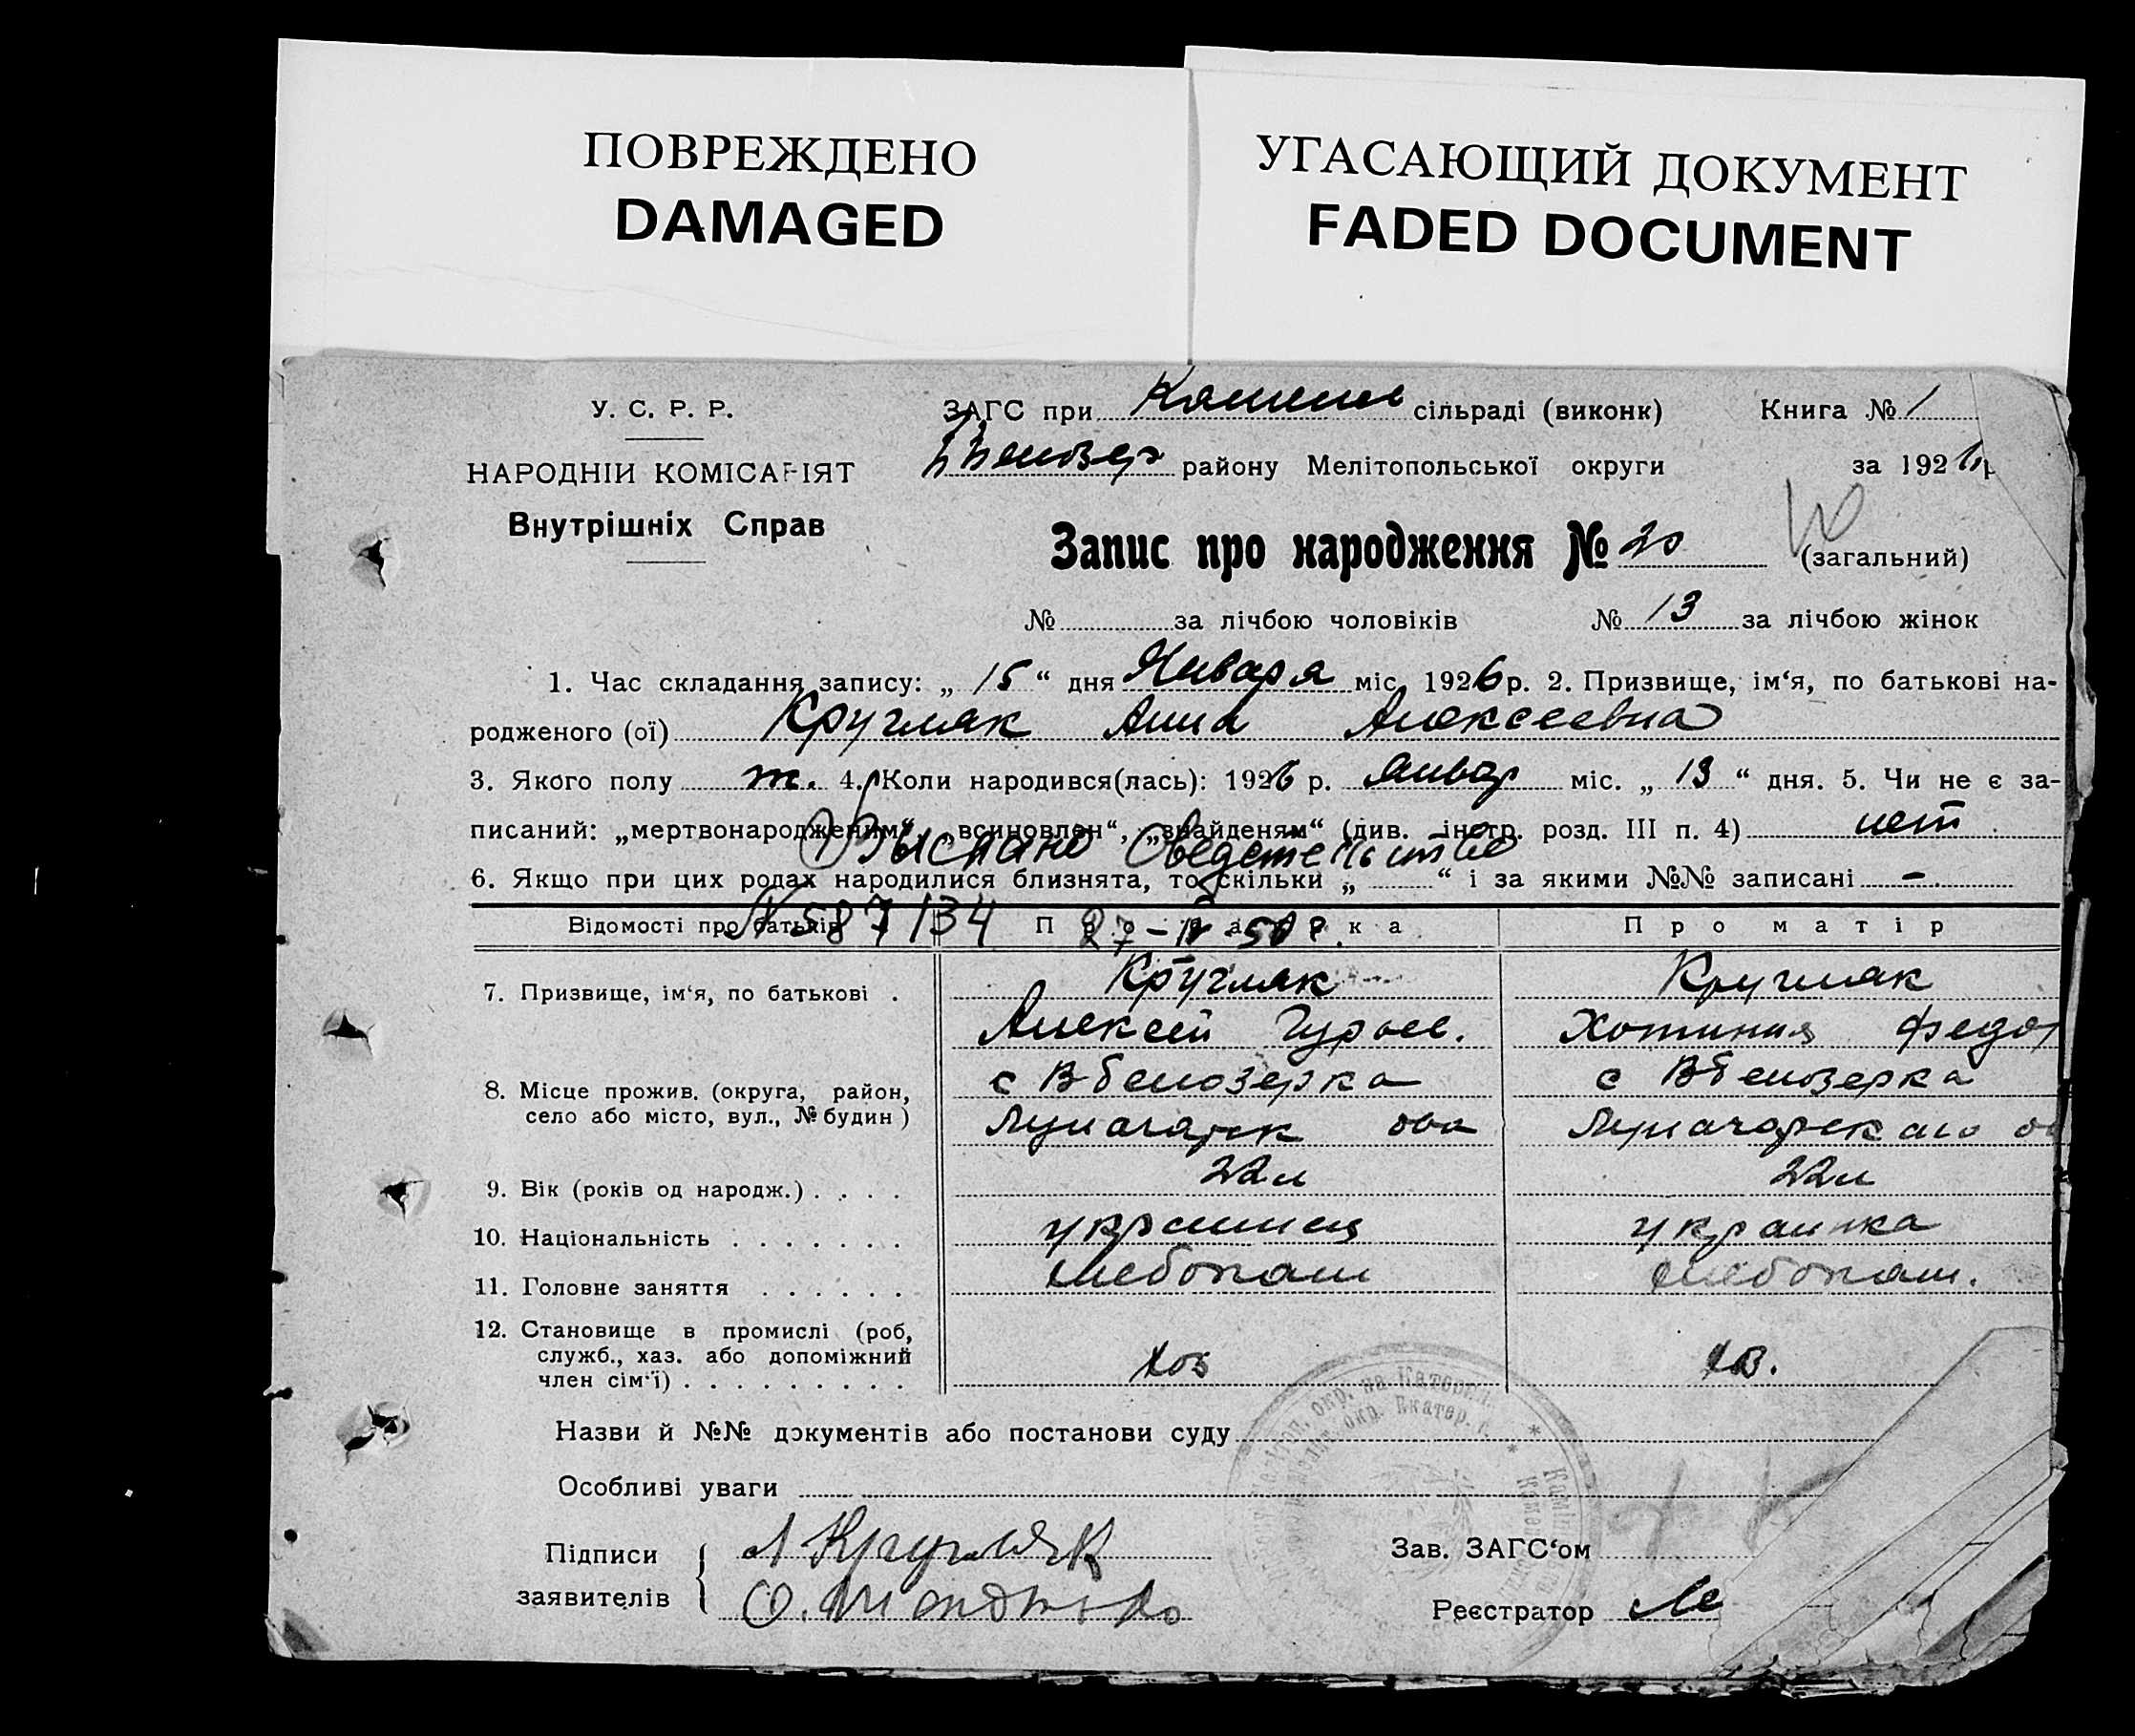 ПОВРЕЖДЕНО
DAMAGED
УГАСАЮЩИЙ ДОКУМЕНТ
FADED DOCUMENT
У. С. Р. Р.
НАРОДНІЙ КОМІСАРІЯТ
Внутрішніх Справ
ЗАГС при сільраді (виконк) Книга № 1
району Мелітопольської округи за 1926 р
Запис про народження № 20 (загальний)
№ за лічбою чоловіків № 13 за лічбою жінок
1. Час складання запису: „ 15 “ дня Января міс. 1926 р. 2. Призвище, ім‘я, по батькові на-
родженого (ої) Кругляк Анна Алексеевна
3. Якого полу 4. Коли народився(лась): 1926 р. Январ міс. „ 13 “ дня. 5. Чи не є за-
писаний: „мертвонародженим“, „всиновлен“, „знайденям“ (див. інстр. розд. III п. 4) нет
Выслано Сведетельство
6. Якщо при цих родах народилися близнята, то скільки „ “ і за якими №№ записані –
N 587134 27-IV-50 г.
Відомості про батьків Про батька Про матір
7. Призвище, ім‘я, по батькові . Кругляк Кругляк
Алексей Гурьев. Хотиния Федор
8. Місце прожив. (округа, район, село або місто, вул., № будин) с Вбелозерка с Вбелозерка
Луначарск ова Луначарскаго
9. Вік (років од народж.) . . . . 22 л 22 л
10. Національність . . . . . . . украинец украинка
11. Головне заняття . . . . . . хлебопаш хлебопаш.
12. Становище в промислі (роб, служб., хаз. або допоміжний член сім‘ї) . . . . . . . . . хоз хоз.
Назви й №№ документів або постанови суду
Особливі уваги
Підписи А Кругляк Зав. ЗАГС‘ом
заявителів Реєстратор